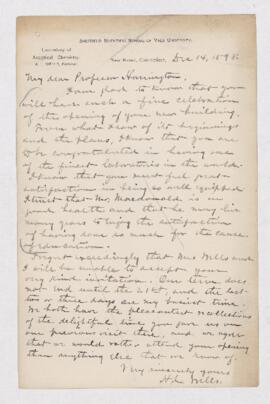 SHEFFIELD SCIENTIFIC SCHOOL OF YALE UNIVERSITY.
Laboratory of
Analytical Chemistry
New Haven, Connecticut, Dec 14, 1898.
My dear Professor Harrington,
I am glad to know that you
will have such a fine celebration
of the opening of your new building.
From what I saw of its beginnings
and the plans, I know that you are
to be congratulated in having one
of the finest laboratories in the world.
I know that you must feel great
satisfaction in being so well equipped.
I trust that Mr. Macdonald is in
good health and that he may live
many years to enjoy the satisfaction
of having done so much for the cause
of education.
I regret exceedingly that Mrs Wells and
I will be unable to accept your
very kind invitation. Our term does
not end until the 21st, and the last
two or three days are my busiest time.
We both have the pleasantest recollections
of the delightful time you gave us on
our previous visit there, and we agree
that we would rather attend your opening
than anything else that we know of.
Very sincerely yours
H. L. Wells.